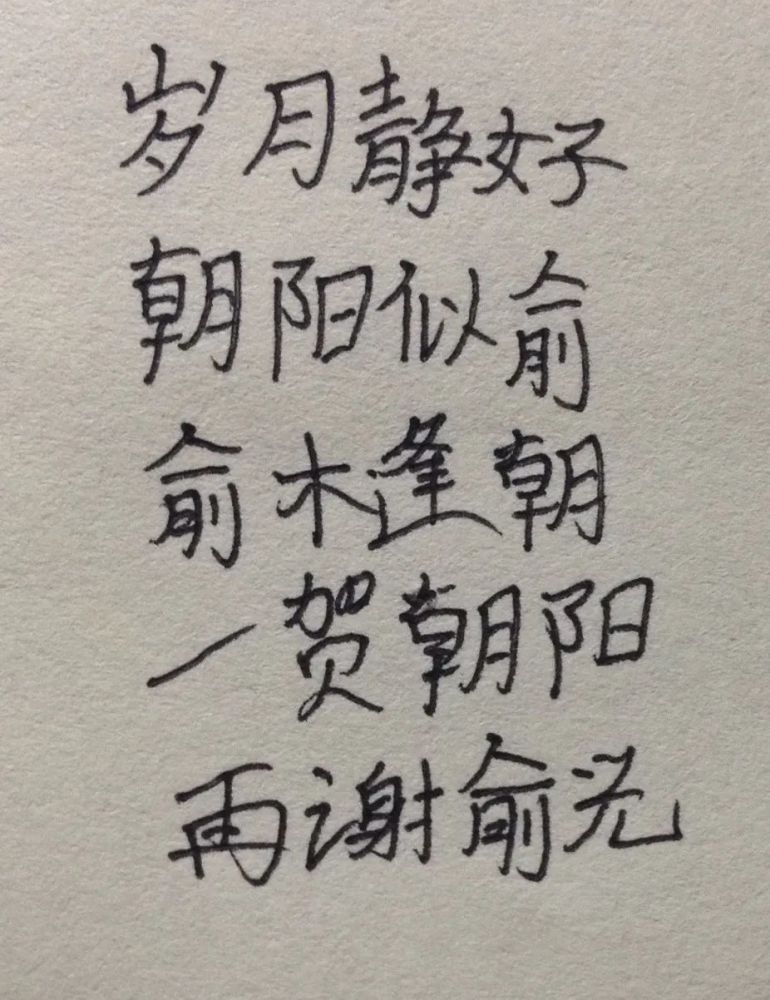 岁月静好
朝阳似俞
俞木逢朝
一贺朝阳
再谢俞光